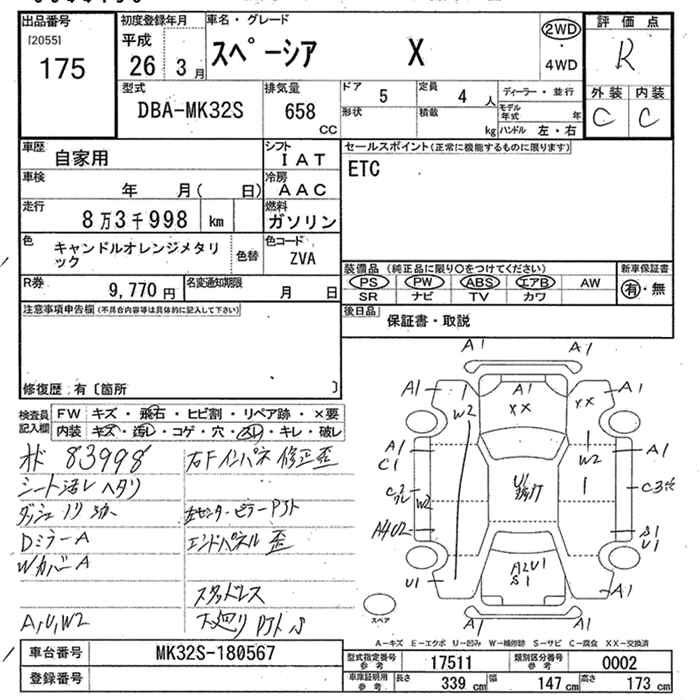 出品番号
[2055]
175
初度登録年月
平成
26 3 月
車名・グレード
スペーシア X
2WD
・
4WD
評価点
R
外装 内装
C C
型式
DBA-MK32S
排気量
658
CC
ドア 5
形状
定員 4 人
積載 kg
ディーラー・並行
モデル年式 年
ハンドル 左・右
車歴
自家用
シフト
IAT
車検
年 月( 日)
冷房
AAC
走行
8万3千998 km
燃料
ガソリン
色
キャンドルオレンジメタリック
色替
色コード
ZVA
R券
9,770 円
名変通知期限
月 日
セールスポイント(正常に機能するものに限ります)
ETC
装備品 (純正品に限り○をつけてください)
PS PW ABS エアB AW
SR ナビ TV カワ
新車保証書
有・無
後日品
保証書・取説
注意事項申告欄(不具合内容等は具体的に記入して下さい)
修復歴:有〔箇所 〕
検査員記入欄
FW キズ・飛石・ヒビ割・リペア跡・×要
内装 キズ・汚レ・コゲ・穴・スレ・キレ・破レ
オド 83998
シート汚レ ヘタリ
ダッシュ ノリ
Dミラー A
Wカバー A
A,U,W2
右Fインパネ 修正歪
左センターピラー
エンドパネル 歪
スタッドレス
下廻り
A1 A1
A1 A1 A1
W2 XX XX
A1 A1
C1 W2
U1
C3
W2
A4U2 S1
U1
U1 A2U1
S1
A1
A1 A1
スペア
A-キズ E-エクボ U-凹み W-補修跡 S-サビ C-腐食 XX-交換済
車台番号
MK32S-180567
登録番号
型式指定番号
参考
17511
類別区分番号
参考
0002
車庫証明用
参考
長さ 339 cm 幅 147 cm 高さ 173 cm